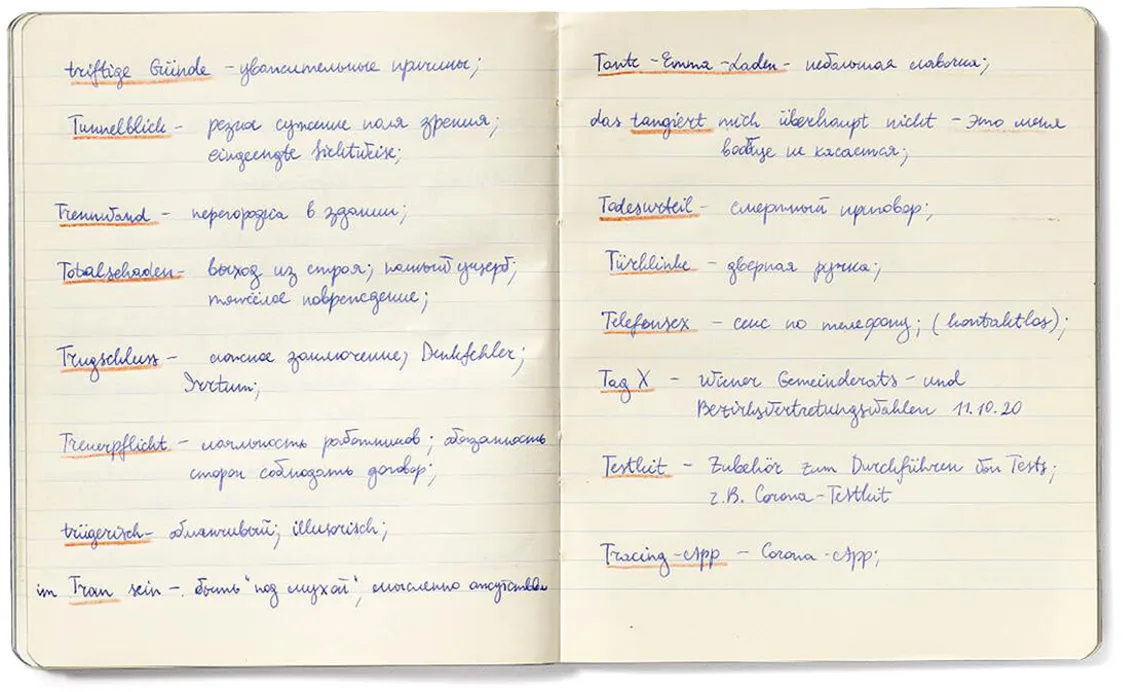 triftige Gründe - уважительные причины;
Tunnelblick - резкое сужение поля зрения;
eingeengte Sichtweise;
Trennwand - перегородка в здании;
Totalschaden - выход из строя; полный ущерб;
тяжёлое повреждение;
Trugschluss - ложное заключение; Denkfehler;
Irrtum;
Treuepflicht - лояльность работников; обязанность
сторон соблюдать договор;
trügerisch - обманчивый; illusorisch;
im Tran sein - быть "под мухой", мысленно отсутствовать
Tante-Emma-Laden - небольшая лавочка;
das tangiert mich überhaupt nicht - это меня
вообще не касается;
Todesurteil - смертный приговор;
Türklinke - дверная ручка;
Telefonsex - секс по телефону; (kontaktlos);
Tag X - Wiener Gemeinderats- und
Bezirksvertretungswahlen 11.10.20
Testkit - Zubehör zum Durchführen von Tests;
z.B. Corona-Testkit
Tracing-App - Corona-App;